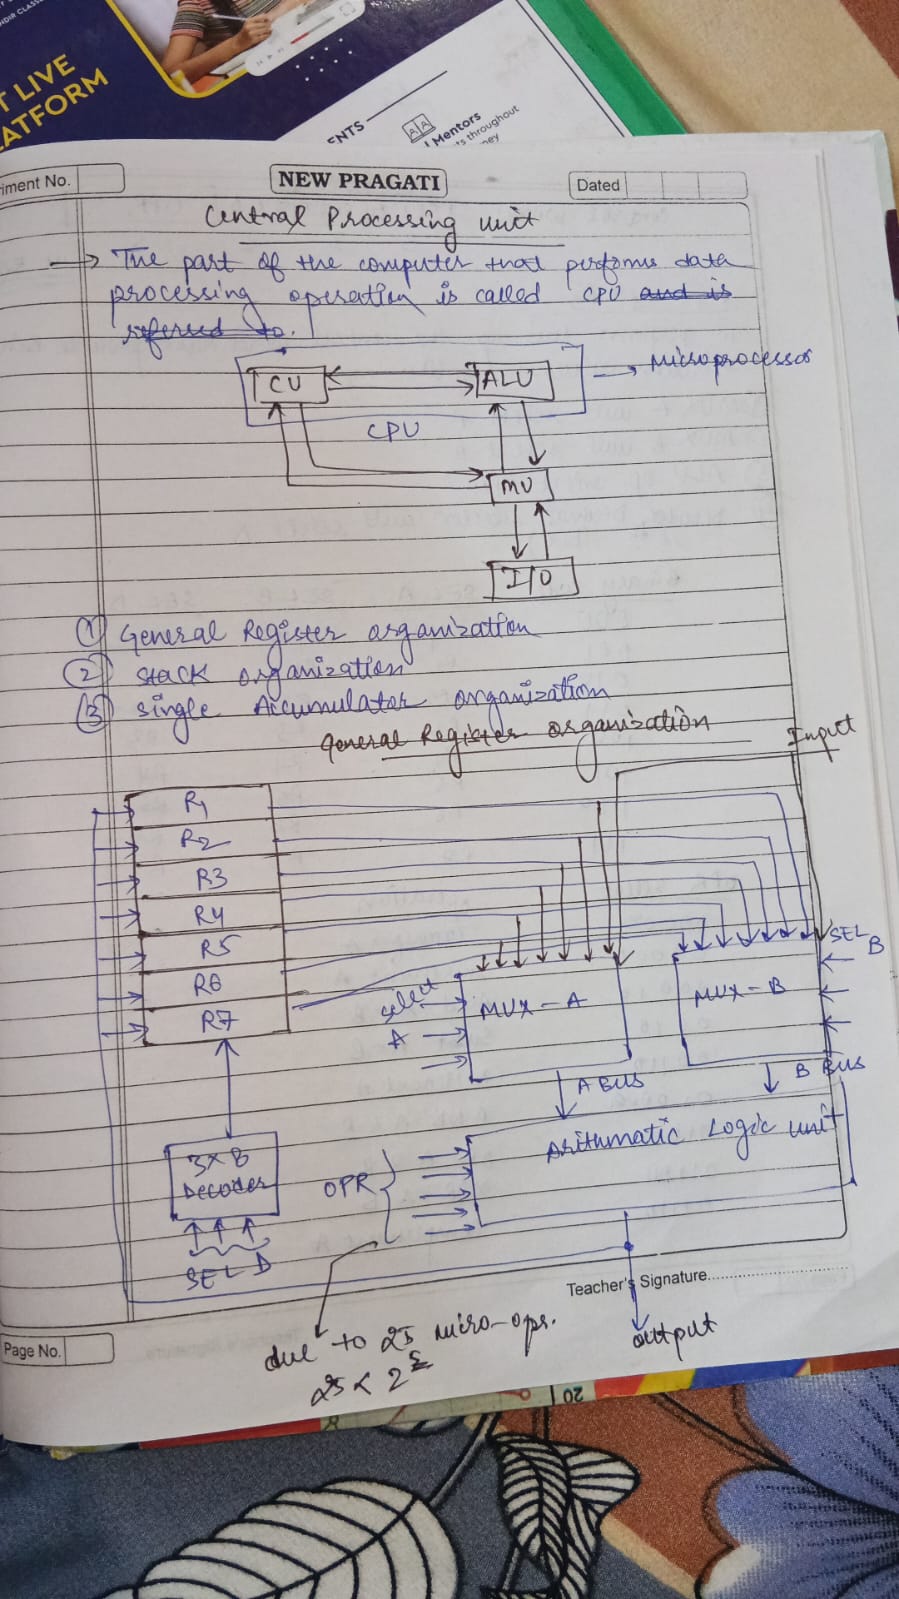 T LIVE
ATFORM
ENTS
Mentors
s throughout
ney
iment No.
NEW PRAGATI
Dated
Central Processing unit
→ The part of the computer that performs data
processing operation is called CPU and is
referred to.
CU
ALU
→ Microprocessor
CPU
MU
I/O
① General Register organization
② Stack organization
③ Single Accumulator organization
General Register organization
Input
R1
R2
R3
R4
R5
R6
R7
SEL B
select A
MUX - A
MUX - B
A BUS
B BUS
3x8
Decoder
OPR
Arithmatic Logic unit
SEL D
Teacher's Signature
Page No.
due to 25 micro-ops.
output
25 < 2^5
20